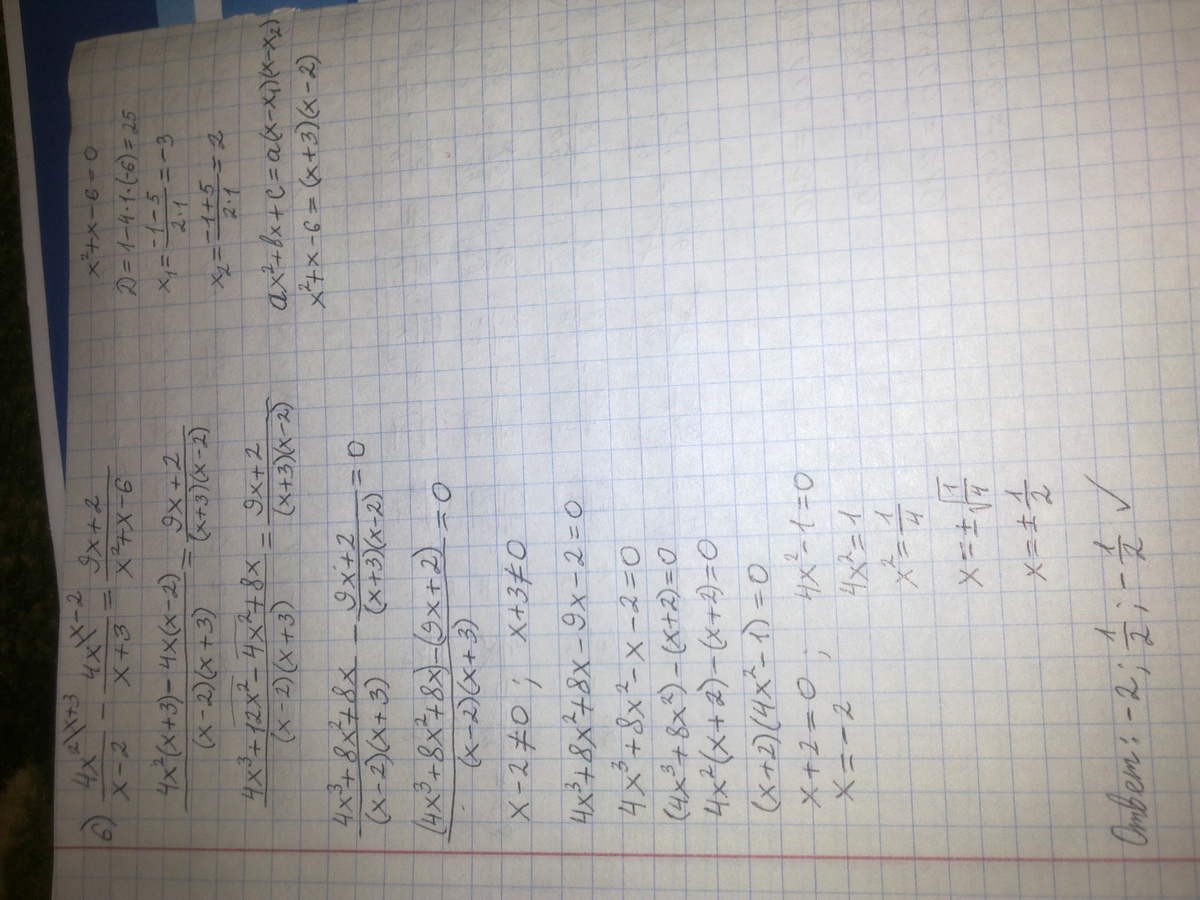 6) 4x²\x+3/(x-2) - 4x\x-2/(x+3) = (9x+2)/(x²+x-6)
(4x²(x+3)-4x(x-2))/((x-2)(x+3)) = (9x+2)/((x+3)(x-2))
(4x³+12x²-4x²+8x)/((x-2)(x+3)) = (9x+2)/((x+3)(x-2))
(4x³+8x²+8x)/((x-2)(x+3)) - (9x+2)/((x+3)(x-2)) = 0
((4x³+8x²+8x)-(9x+2))/((x-2)(x+3)) = 0
x-2≠0; x+3≠0
4x³+8x²+8x-9x-2=0
4x³+8x²-x-2=0
(4x³+8x²)-(x+2)=0
4x²(x+2)-(x+2)=0
(x+2)(4x²-1)=0
x+2=0; 4x²-1=0
x=-2 4x²=1
x²=1/4
x=±√1/√4
x=±1/2
Ответ: -2; 1/2; -1/2 ✓
x²+x-6=0
D=1-4·1·(-6)=25
x₁=(-1-5)/(2·1)=-3
x₂=(-1+5)/(2·1)=2
ax²+bx+c=a(x-x₁)(x-x₂)
x²+x-6=(x+3)(x-2)